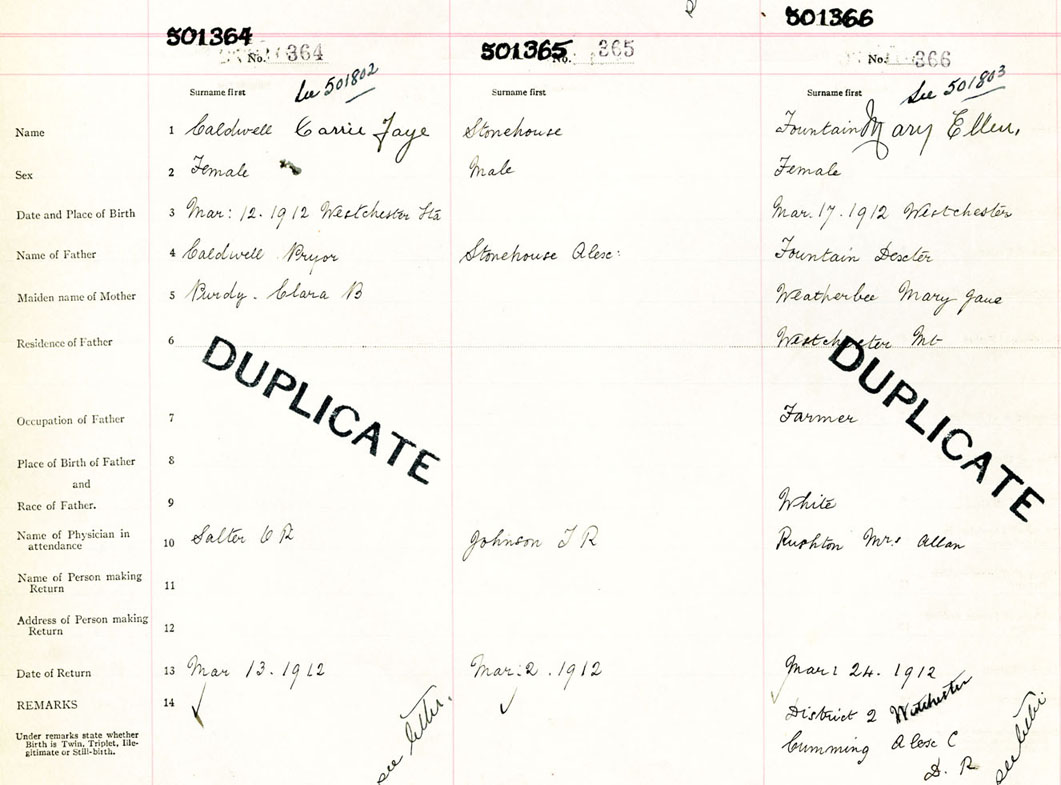 501364
501365
501366
No. 364
No. 365
No. 366
See 501802
See 501803
Surname first
Surname first
Surname first
Name 1 Caldwell Carrie Faye Stonehouse Fountain Mary Ellen.
Sex 2 Female Male Female
Date and Place of Birth 3 Mar: 12. 1912 Westchester Sta Mar. 17. 1912 Westchester
Name of Father 4 Caldwell Pryor Stonehouse Alex: Fountain Dexter
Maiden name of Mother 5 Purdy. Clara B Weatherbee Mary Jane
Residence of Father 6 Westchester Mt
DUPLICATE
DUPLICATE
Occupation of Father 7 Farmer
Place of Birth of Father 8
and
Race of Father. 9 White
Name of Physician in
attendance 10 Salter C R Johnson T R Rushton Mrs Allan
Name of Person making
Return 11
Address of Person making
Return 12
Date of Return 13 Mar 13. 1912 Mar: 2. 1912 Mar: 24. 1912
REMARKS 14
District 2 Westchester
Under remarks state whether
Birth is Twin, Triplet, Ille-
gitimate or Still-birth.
Cumming Alex C
D. R
see letter.
see letter.